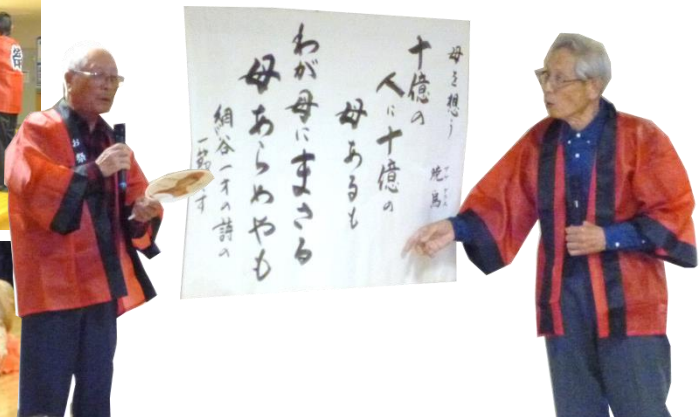 母を想う
暁烏
十億の
人に十億の
母あるも
わが母にまさる
母あらめやも
網谷一才の詩の
一節です
お祭